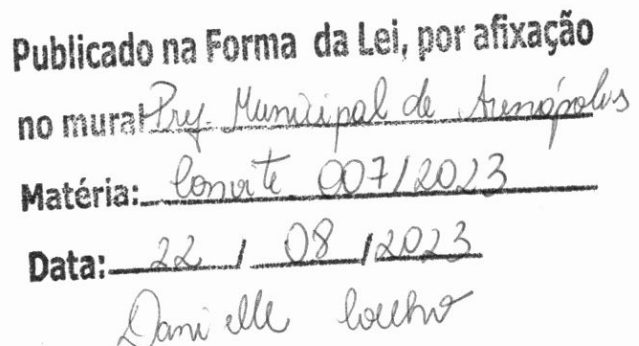 Publicado na Forma da Lei, por afixação
no mural Pref. Municipal de Arenápolis
Matéria: Convite 007/2023
Data: 22 / 08 / 2023
Danielle Coelho